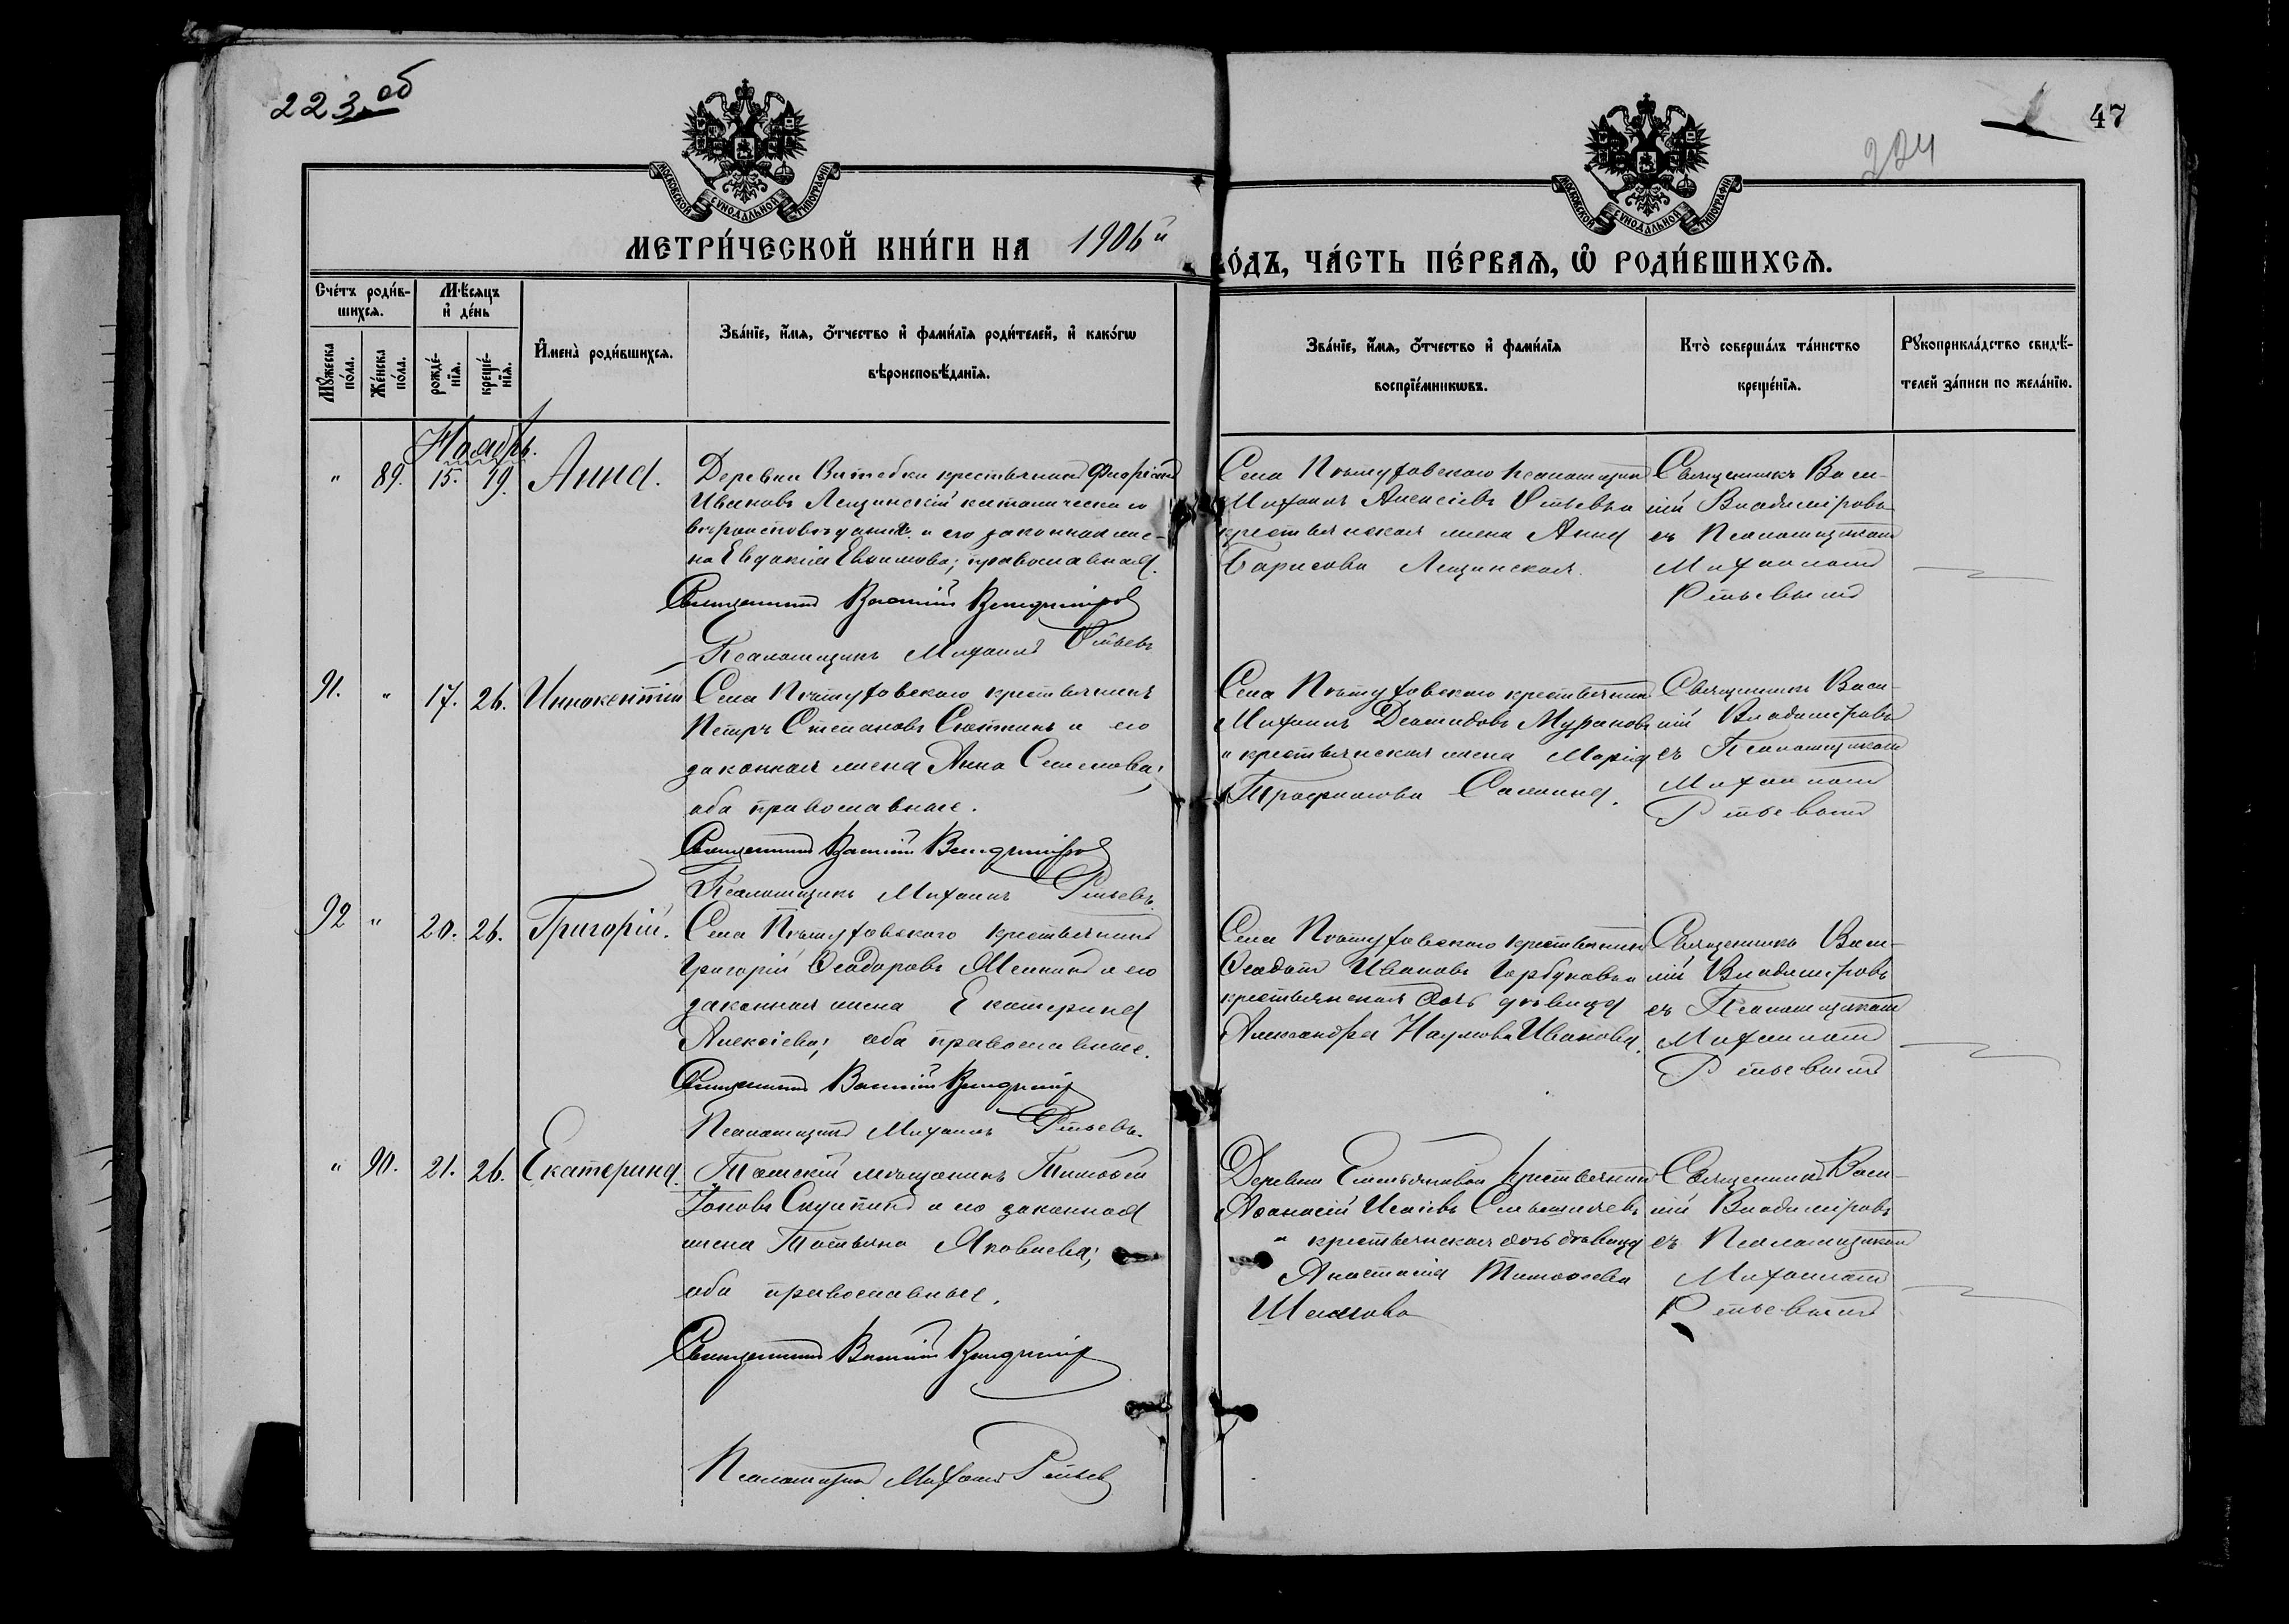 223 об
224
47
МОСКОВСКОЙ СѴНОДАЛЬНОЙ ТИПОГРАФІИ
МОСКОВСКОЙ СѴНОДАЛЬНОЙ ТИПОГРАФІИ
МЕТРИ́ЧЕСКОЙ КНИ́ГИ НА 1906й
ГО́ДЪ, ЧА́СТЬ ПЕ́РВАѦ, Ѡ҆ РОДИ́ВШИХСѦ.
Сче́тъ роди́в-
шихсѧ.
Мꙋ́жеска
по́ла.
Же́нска
по́ла.
Мѣ́сѧцъ
и҆ де́нь
рожде́-
нїѧ.
креще́-
нїѧ.
И҆мена̀ роди́вшихсѧ.
Зва́нїе, и҆́мѧ, ѻ҆́тчество и҆ фами́лїѧ роди́телей, и҆ како́гѡ
вѣроисповѣ́данїѧ.
Зва́нїе, и҆́мѧ, ѻ҆́тчество и҆ фами́лїѧ
воспрїе́мникѡвъ.
Кто̀ соверша́лъ та́инство
креще́нїѧ.
Рꙋкоприкла́дство свидѣ́-
телей за́писи по жела́нїю.
Ноябрь.
" 89. 15. 19. Анна.
Деревни Витебки крестьянинъ
Ивановъ Лещинскій католическаго
вѣроисповѣданія и его законная же-
на Евдокія Евѳимова; православная.
Священникъ Василій Владиміровъ
Псаломщикъ Михаилъ
Села псаломщикъ
Михаилъ Алексіевъ и
крестьянская жена Анна
Борисова Лещинская.
Священникъ Васи-
лій Владиміровъ
съ Псаломщикомъ
Михаиломъ
91. " 17. 26. Иннокентій
Села крестьянинъ
Петръ Степановъ и его
законная жена Анна Семенова;
оба православные.
Священникъ Василій Владиміровъ
Псаломщикъ Михаилъ
Села крестьянинъ
Михаилъ Демидовъ Мурановъ
и крестьянская жена Марія
Трофимова
Священникъ Васи-
лій Владиміровъ
съ Псаломщикомъ
Михаиломъ
92 " 20. 26. Григорій.
Села крестьянинъ
Григорій Ѳеодоровъ и его
законная жена Екатерина
Алексіева; оба православные.
Священникъ Василій Владиміровъ
Псаломщикъ Михаилъ
Села крестьянинъ
Ивановъ Горбуновъ и
крестьянская дочь дѣвица
Александра Наумова Иванова.
Священникъ Васи-
лій Владиміровъ
съ Псаломщикомъ
Михаиломъ
" 90. 21. 26. Екатерина.
Томскій мѣщанинъ Тимоѳей
и его законная
жена Татьяна Яковлева;
оба православные.
Священникъ Василій Владиміровъ
Псаломщикъ Михаилъ
Деревни крестьянинъ
Аѳанасій Исаіевъ
и крестьянская дочь дѣвица
Анастасія Тимоѳеева
Священникъ Васи-
лій Владиміровъ
съ Псаломщикомъ
Михаиломъ